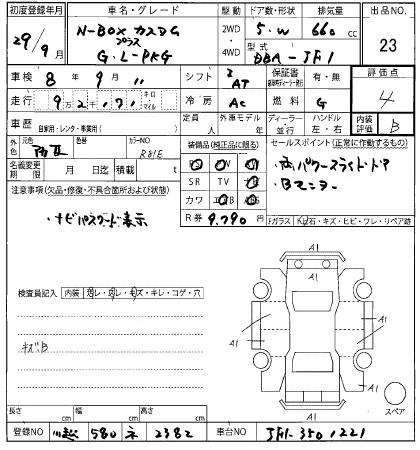 初度登録年月 車名・グレード 駆動 ドア数・形状 排気量 出品NO.
29年 9月 N-BOX カスタム プラス G・L-PKG 2WD・4WD 5.W 660cc 23
型式 DBA-JF1
車検 8年 9月 シフト AT 保証書 有・無 評価点 4
走行 キロ・マイル 冷房 AC 燃料 G
車歴 自家用・レンタ・事業用( ) 定員 人 外車モデル 年 ディーラー・並行 ハンドル 左・右 内装評価 B
外色 元色 色No. カラーNO R81E 装備品(純正品に限る) セールスポイント(正常に作動するもの)
名義変更期限 月 日 積載 t
・Bモニター
注意事項(欠品・修復・不具合箇所および状態) SR TV
・ナビパスワード表示 カワ
R券 9,790円
Fガラス 石・キズ・ヒビ・ワレ・リペア跡
検査員記入 内装 ・キズ・キレ・コゲ・穴
キズB
A1
A1
A1
A1
A1
スペア
長さ cm 幅 cm 高さ cm
登録NO 川越 580 ネ 2382 車台NO JF1-3501221